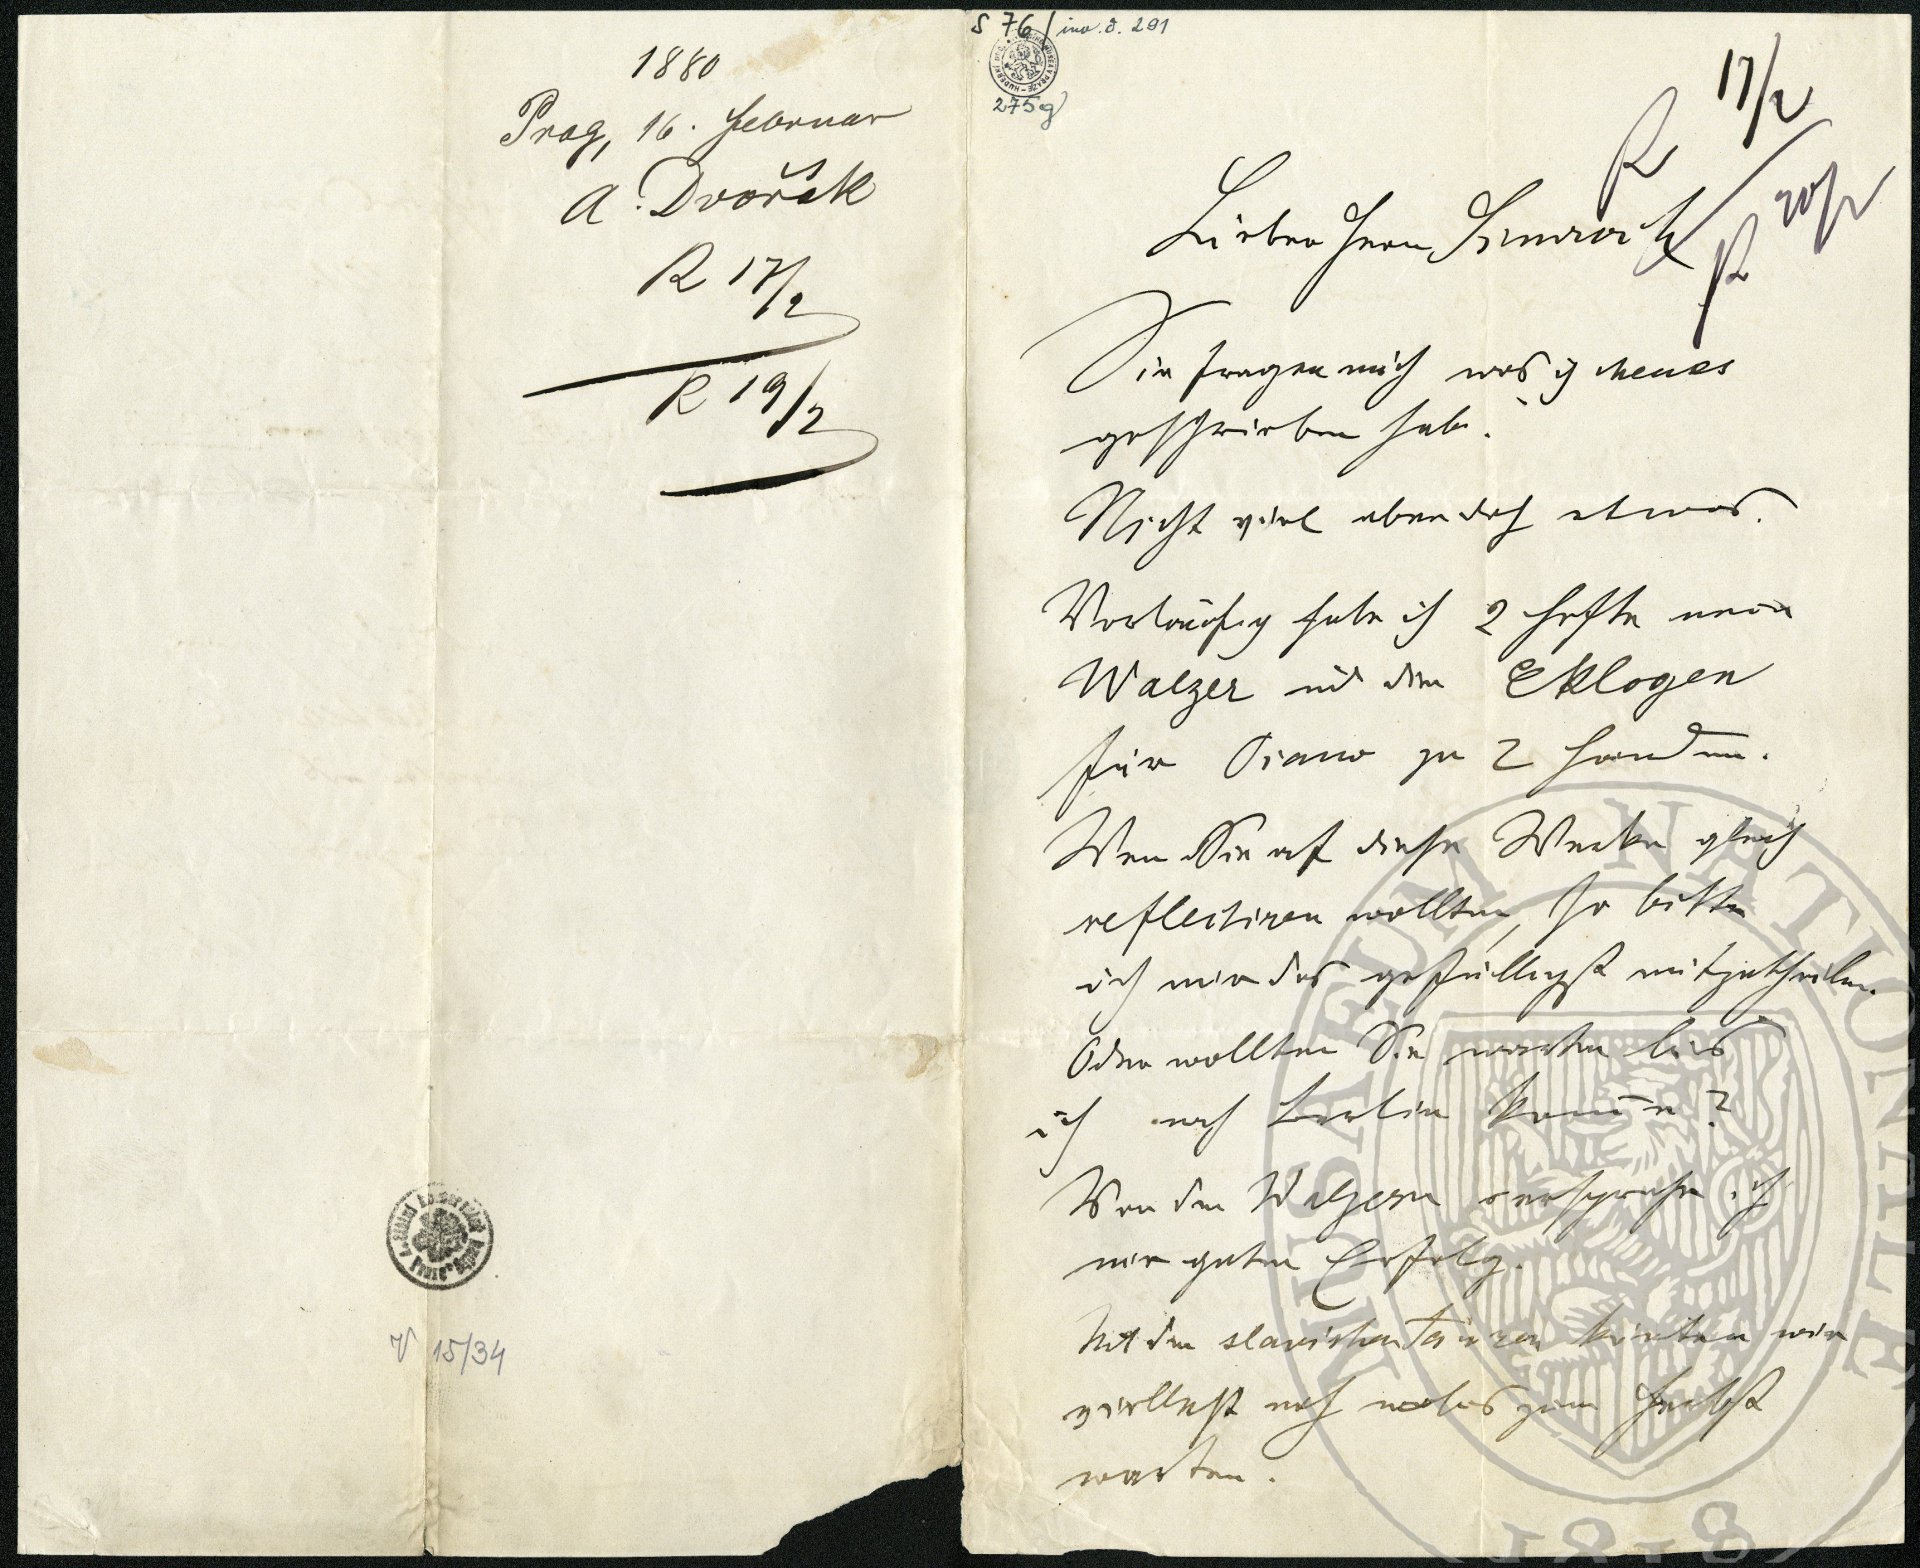 1880
Prag, 16. Februar
A. Dvořák
R 17/2
R 19/2
V 15/34
S 76/inv. č. 291
275g
17/2
R
20/2
R
Lieber Herr Simrock
Sie fragen mich was ich Neues
geschrieben habe.
Nicht viel aber doch etwas.
Vorläufig habe ich 2 Hefte neue
Walzer und dann Eklogen
für Piano zu 2 Händen.
Wen Sie auf diese Werke gleich
reflectiren wollten, so bitte
ich mir das gefälligst mitzutheilen.
Oder wollten Sie warten bis
ich nach Berlin kom̄e?
Von den Walzern verspreche ich
mir guten Erfolg.
Mit den slavischen Tänzen könten wir
vielleicht noch bis zum Herbst
warten.
MUSAEUM NATIONALE
1818